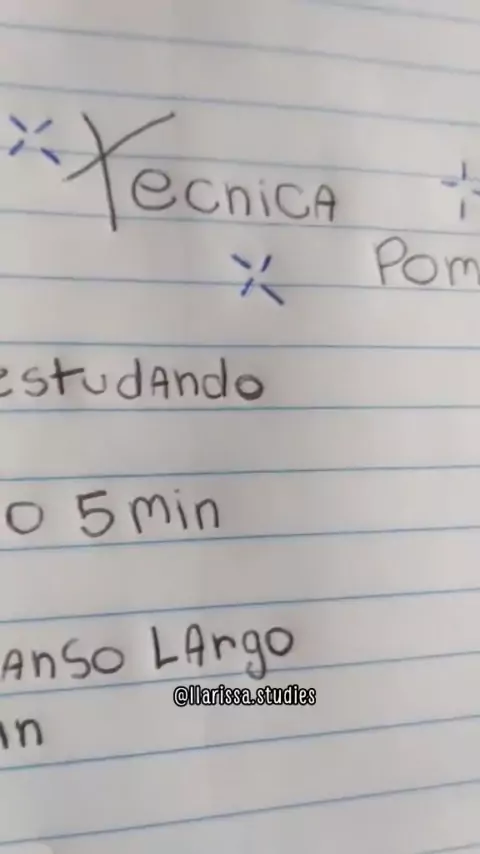 Tecnica
Pom
estudando
o 5 min
anso Largo
@llarissa.studies
in